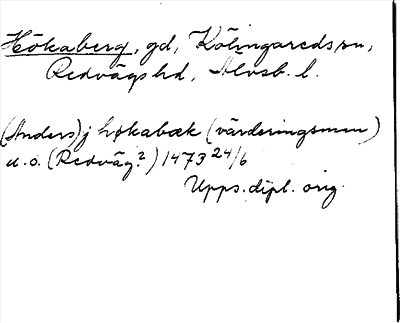 Hökaberg, gd, Kölingareds sn,
Redvägs hd, Älvsb. l.
(Anders) j høkabæk (värderingsmen)
u. o. (Redväg?) 1473 24/6
Upps. dipl. orig.